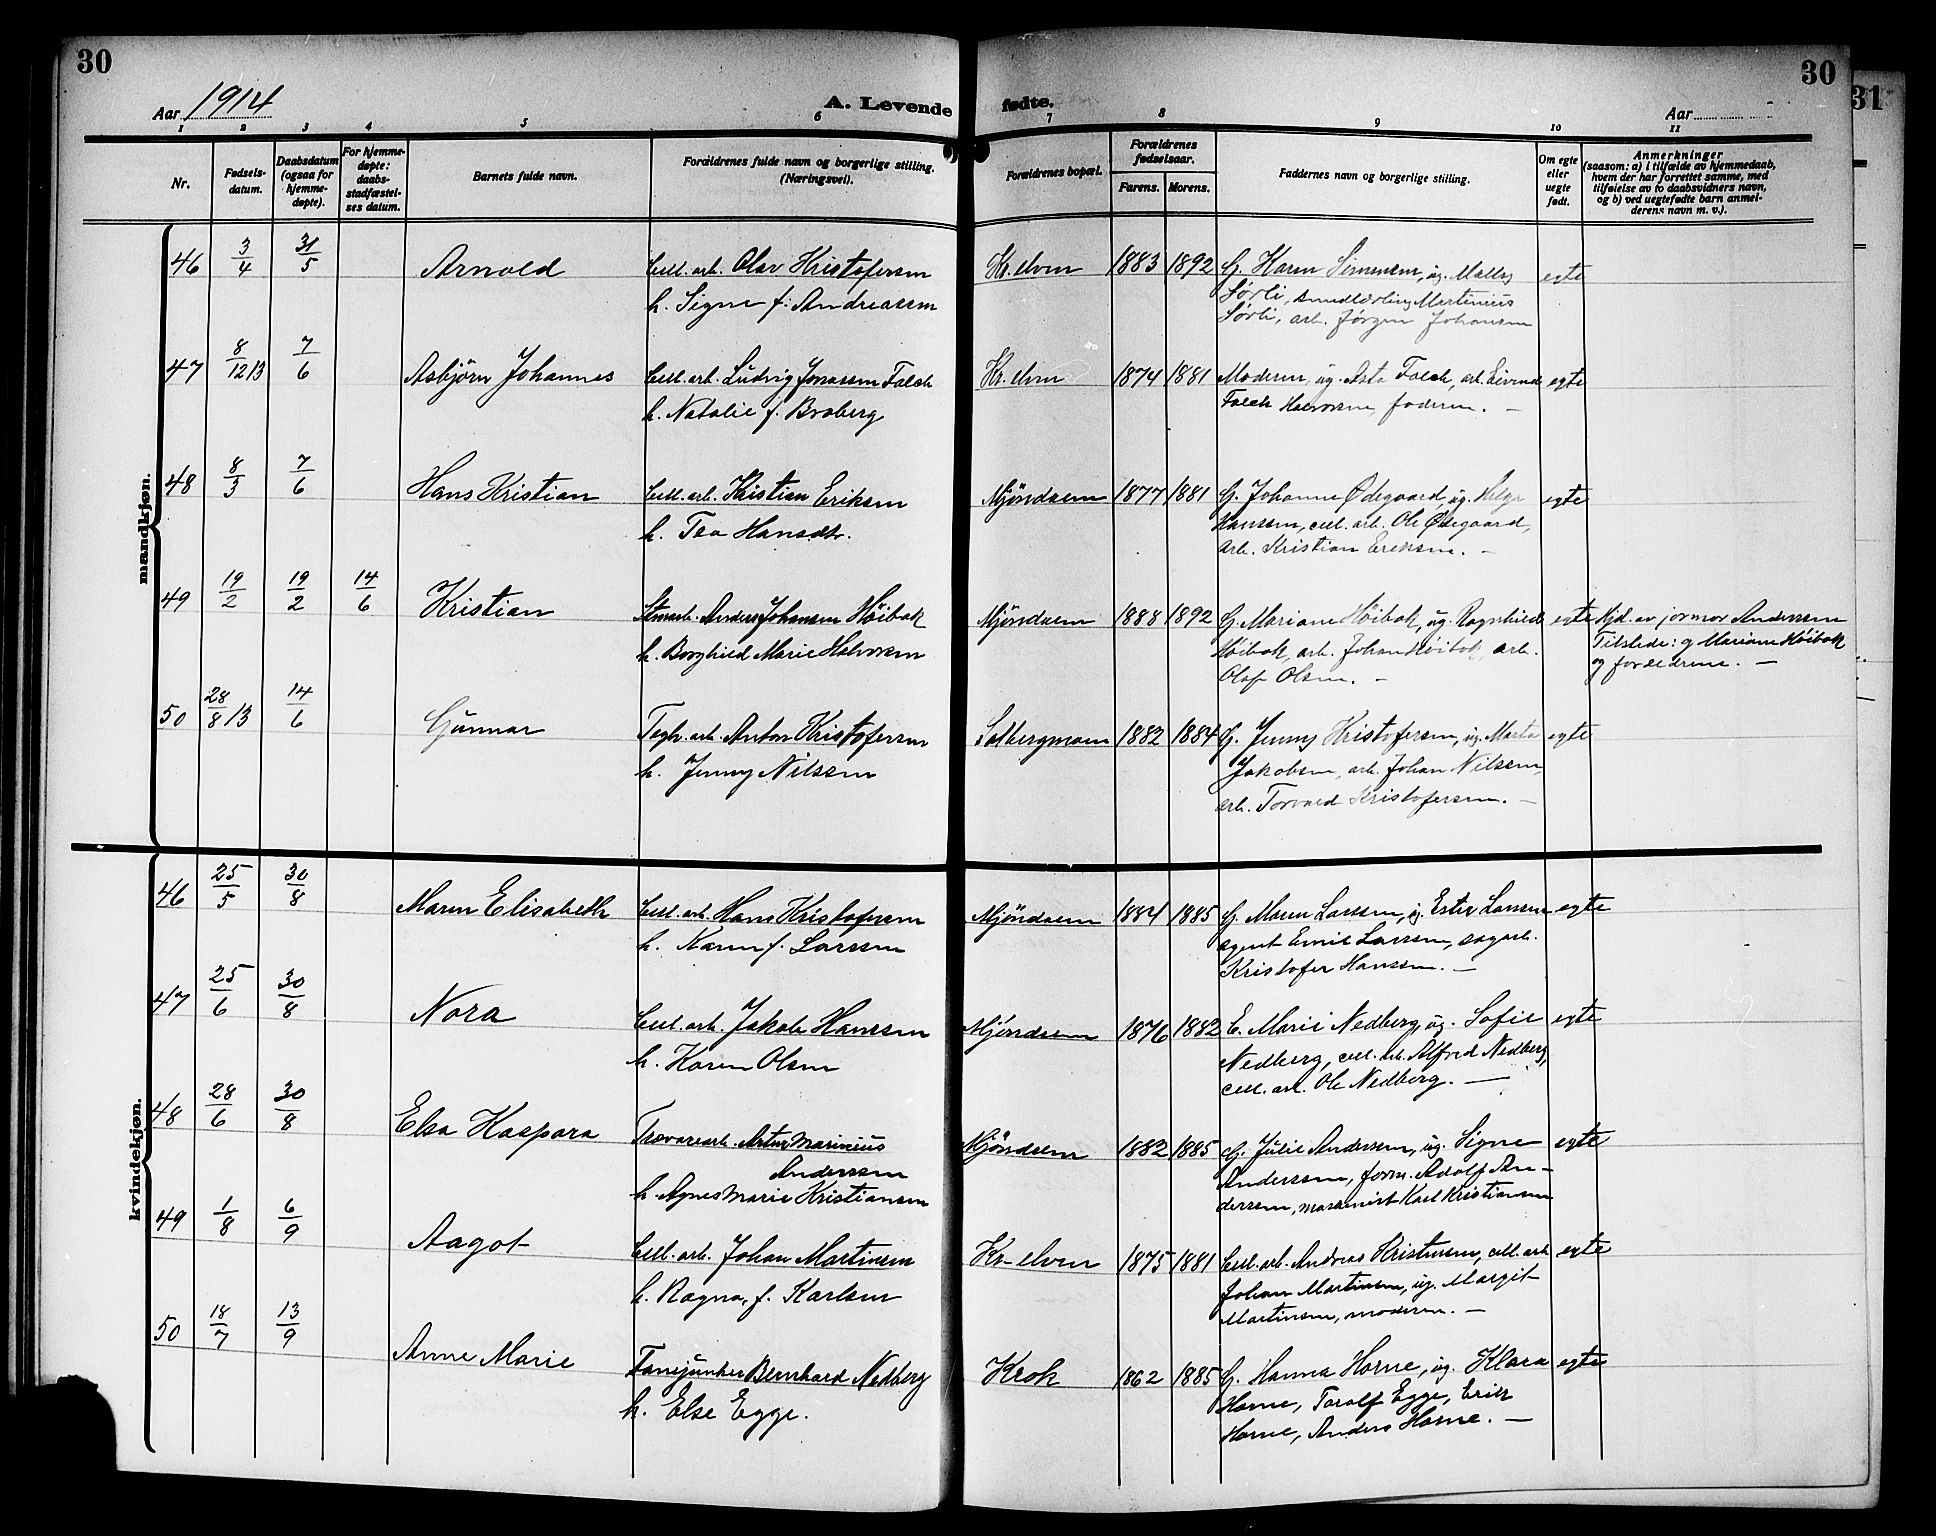 30
30
31
Aar 1914
A. Levende fødte.
Aar
1 2 3 4 5 6 7 8 9 10 11
Nr.
Fødsels-
datum.
Daabsdatum
(ogsaa for
hjemme-
døpte).
For hjemme-
døpte:
daabs-
stadfæstel-
ses datum.
Barnets fulde navn.
Forældrenes fulde navn og borgerlige stilling.
(Næringsvei).
Forældrenes bopæl.
Forældrenes
fødselsaar.
Farens. Morens.
Faddernes navn og borgerlige stilling.
Om egte
eller
uegte
født.
Anmerkninger
(saasom: a) i tilfælde av hjemmedaab,
hvem der har forrettet samme, med
tilføielse av to daabsvidners navn,
og b) ved uegtefødte barn anmel-
derens navn m. v.).
mandkjøn.
46 3/4 31/5 Arnold Cell. arb. Olav Kristofersen Kr. elven 1883 1892 G. Karen Simensen, ug. Mally egte
h. Signe f. Andreassen
Sørli, Martinius
Sørli, arb. Jörgen Johansen
47 8/12 13 7/6 Asbjörn Johannes Cell. arb. Ludvig Jonassen Falch Kr. elven 1874 1881 Moderen, ug. Asta Falch, arb. Eivind egte
h. Natalie f. Broberg
Falch Halvorsen, faderen. –
48 8/3 7/6 Hans Kristian Cell. arb. Kristian Eriksen Mjöndalen 1877 1881 G. Johanne Ødegaard, ug. Helga egte
h. Tea Hansdtr.
Hanssen, cell. arb. Ole Ødegaard,
arb. Kristian Eriksen. –
49 19/2 19/2 14/6 Kristian Anders Johansen Höibak Mjöndalen 1888 1892 G. Mariane Höibak, ug. Ragnhild egte Hjd. av jormor Anderssen
h. Borghild Marie Halvorsen
Höibak, arb. Johan Höibak, arb.
Olaf Olsen. –
Tilstede: g Mariane Höibak
og forældrene. –
50 28/8 13 14/6 Gunnar Tegl. arb. Anton Kristofersen Solbergmoen 1882 1884 G. Jenny Kristofersen, ug. Marta egte
h. Jenny Nilssen
Jakobsen, arb. Johan Nilssen,
arb. Torvald Kristofersen. –
kvindekjøn.
46 25/5 30/8 Maren Elisabeth Cell. arb. Hans Kristofersen Mjöndalen 1884 1885 G. Maren Larssen, ug. Ester Larssen egte
h. Karen f. Larssen
agent Emil Larssen, sagarb.
Kristofer Hanssen. –
47 25/6 30/8 Nora Cell. arb. Jakob Hanssen Mjöndalen 1876 1882 E. Marie Nedberg, ug. Sofie egte
h. Karen Olsen
Nedberg, cell. arb. Alfred Nedberg,
cell. arb. Ole Nedberg. –
48 28/6 30/8 Elsa Kaspara Trævarearb. Artur Marinius Mjöndalen 1882 1885 G. Julie Anderssen, ug. Signe egte
Anderssen
h. Agnes Marie Kristiansen
Anderssen, form. Adolf An-
derssen, maskinist Karl Kristiansen
49 1/8 6/9 Aagot Cell. arb. Johan Martinsen Kr-elven 1875 1881 Cell. arb. Andreas Kristensen, cell. arb. egte
h. Ragna, f. Karlsen
Johan Martinsen, ug. Margit
Martinsen, moderen. –
50 18/7 13/9 Anne Marie Fanejunker Bernhard Nedberg Krok 1862 1885 G. Hanna Horne, ug. Klara egte
h. Else Egge.
Horne, Toralf Egge, Erik
Horne, Anders Horne. –